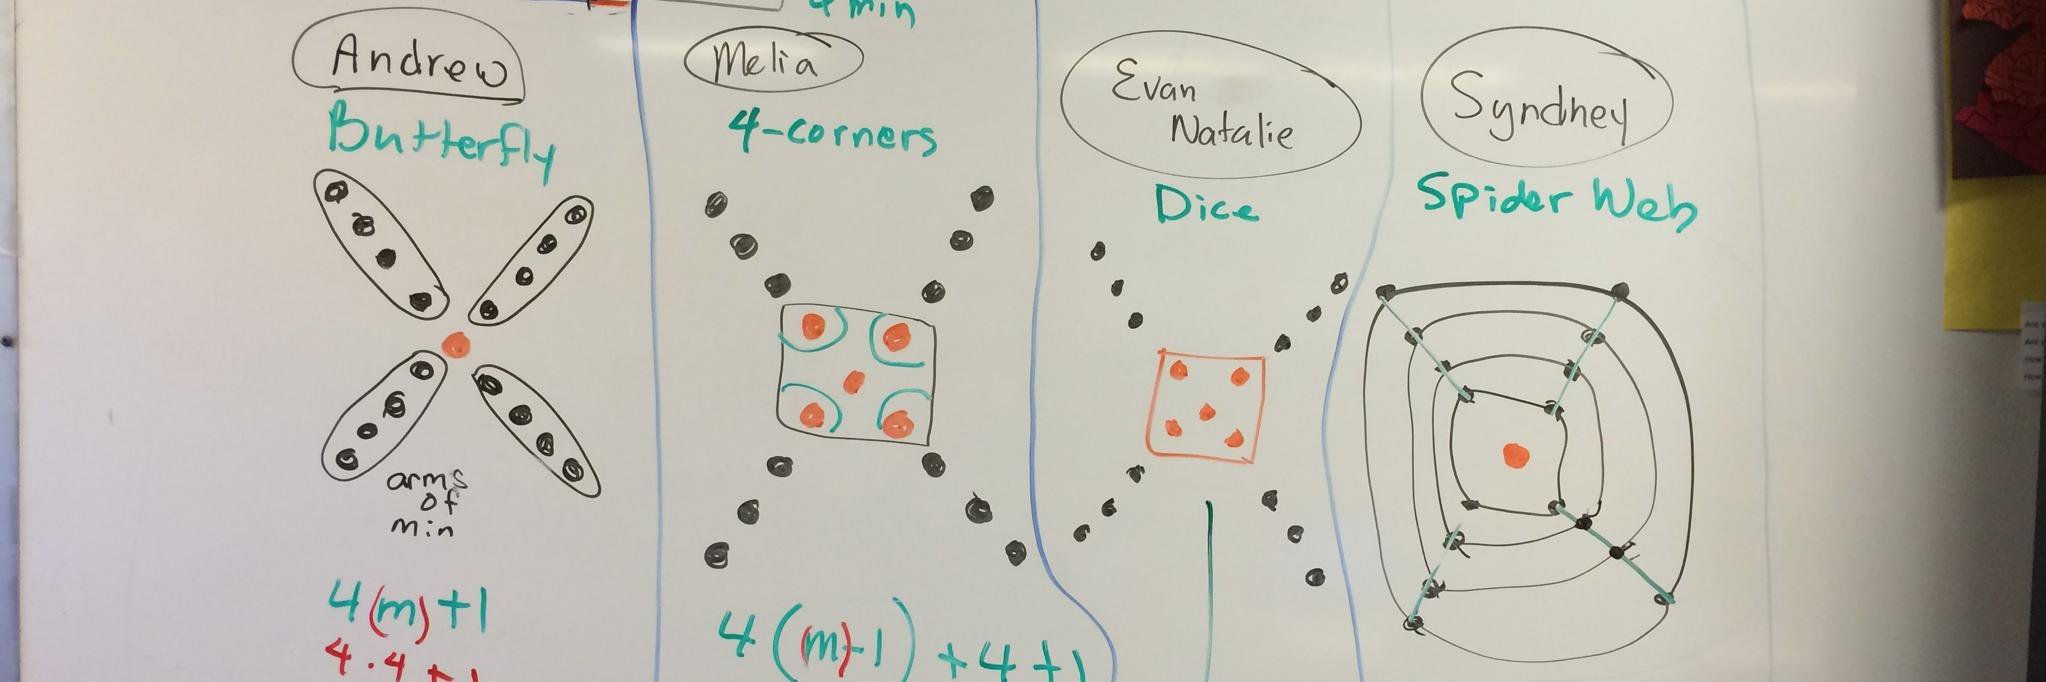 4 min
Andrew
Butterfly
arms
of
min
4(m)+1
4·4+1
Melia
4-corners
4((m)-1)+4+1
Evan
Natalie
Dice
Syndney
Spider Web